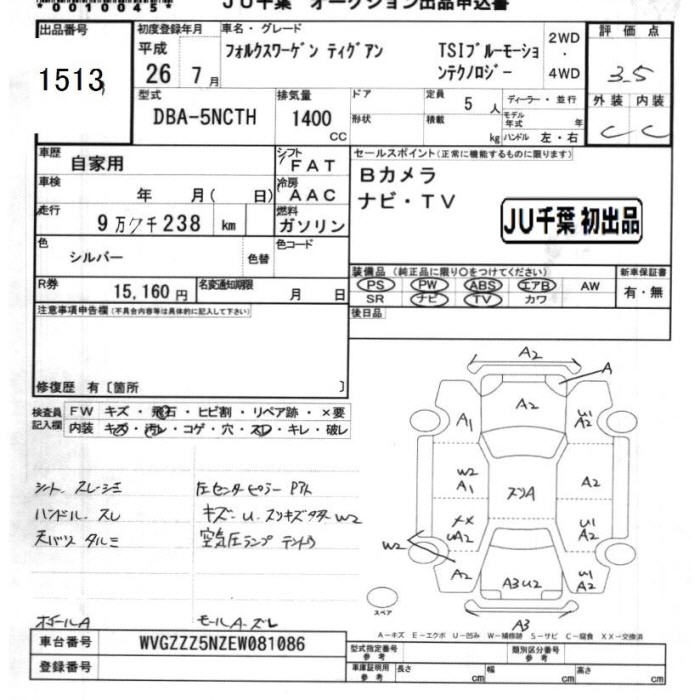 00100045
JU千葉 オークション出品申込書
出品番号
1513
初度登録年月
平成
26 7月
車名・グレード
フォルクスワーゲン ティグアン TSIブルーモーショ
ンテクノロジー
2WD
・
4WD
評価点
3.5
外装 内装
C C
型式
DBA-5NCTH
排気量
1400
CC
ドア
形状
定員 5人
積載 kg
ディーラー・並行
モデル年式 年
ハンドル 左・右
車歴 自家用
シフト FAT
車検 年 月( 日)
冷房 AAC
走行 9万クチ238 km
燃料 ガソリン
色 シルバー 色替
色コード
R券 15,160円
名変通知期限 月 日
セールスポイント(正常に機能するものに限ります)
Bカメラ
ナビ・TV
JU千葉 初出品
装備品(純正品に限り○をつけてください)
PS PW ABS エアB AW
SR ナビ TV カワ
新車保証書
有・無
後日品
注意事項申告欄(不具合内容等は具体的に記入して下さい)
修復歴 有〔箇所 〕
検査員
記入欄
FW キズ・飛石・ヒビ割・リペア跡・×要
内装 キズ・汚レ・コゲ・穴・スレ・キレ・破レ
シート スレ・シミ
ハンドル スレ
天バリ タルミ
ボールA
左センターピラー
キズ・U
W2
空気圧ランプ テントウ
モールA・ズレ
A2
A
A2
A1
U1
A2
W2
A1
スリA
A2
XX
UA2
U1
A2
W2
A2
A3U2
U1
A2
A3
スペア
A－キズ E－エクボ U－凹み W－補修跡 S－サビ C－腐食 XX－交換済
車台番号 WVGZZZ5NZEW081086
登録番号
型式指定番号
参考
類別区分番号
参考
車庫証明用
参考
長さ cm 幅 cm 高さ cm